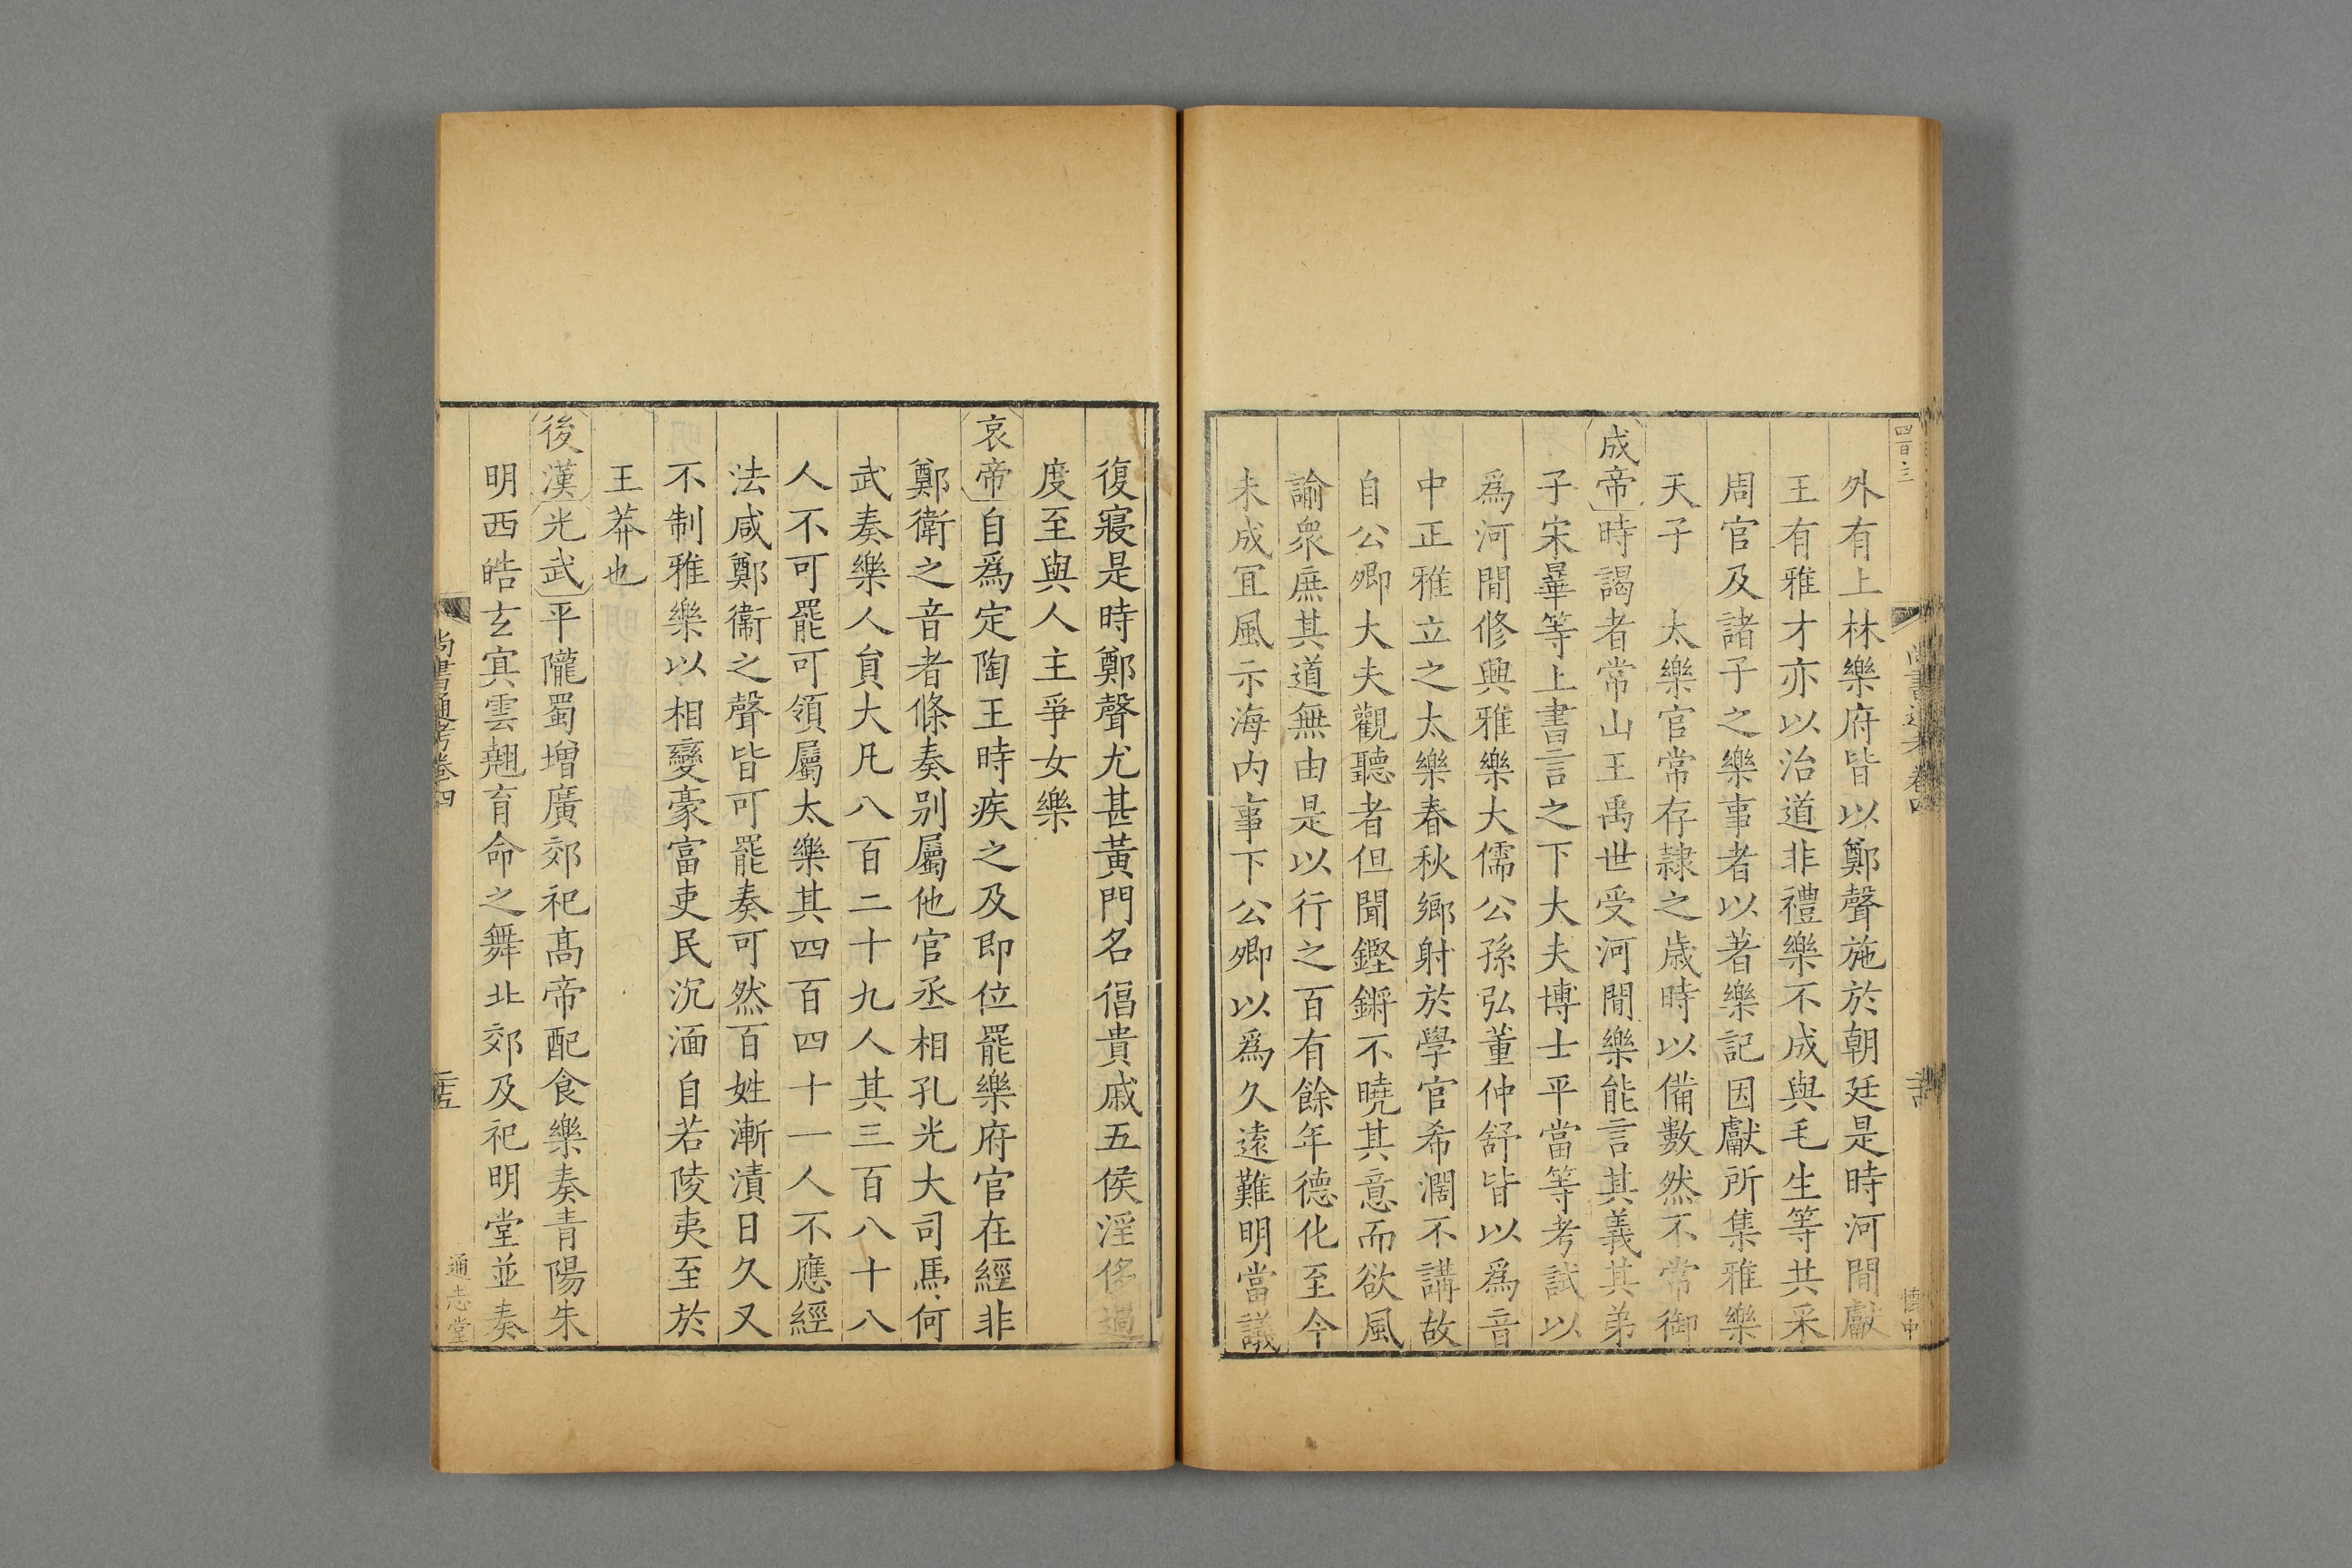 四百三
尚書通考卷四
外有上林樂府皆以鄭聲施於朝廷是時河間獻
王有雅才亦以治道非禮樂不成與毛生等共采
周官及諸子之樂事者以著樂記因獻所集雅樂
天子 太樂官常存隷之歳時以備數然不常御
成帝時謁者常山王禹世受河間樂能言其義其弟
子宋㬥等上書言之下大夫博士平當等考試以
爲河間修興雅樂大儒公孫弘董仲舒皆以爲音
中正雅立之太樂春秋鄉射於學官希濶不講故
自公卿大夫觀聽者但聞鏗鏘不曉其意而欲風
諭衆庶其道無由是以行之百有餘年德化至今
未成宜風示海内事下公卿以爲久逺難明當議
復寢是時鄭聲尤甚黄門名倡貴戚五侯淫侈過
度至與人主爭女樂
哀帝自爲定陶王時疾之及即位罷樂府官在經非
鄭衛之音者條奏别屬他官丞相孔光大司馬何
武奏樂人貟大凡八百二十九人其三百八十八
人不可罷可領屬太樂其四百四十一人不應經
法咸鄭衞之聲皆可罷奏可然百姓漸漬日久又
不制雅樂以相變豪富吏民沉湎自若陵夷至於
王莽也
後漢光武平隴蜀增廣郊祀髙帝配食樂奏青陽朱
明西皓玄㝠雲翹育命之舞北郊及祀明堂並奏
尚書通考卷四
通志堂